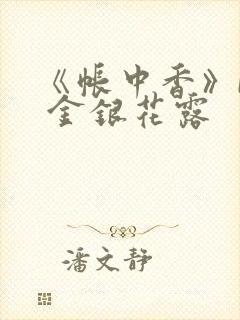 《帐中香》
金银花露
潘文静